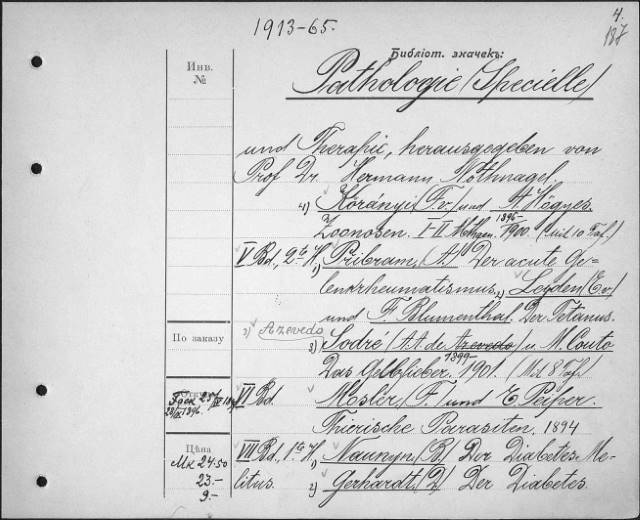 1913-65.
4.
187
Библіот. значекъ:
Инв.
№
Pathologie (Specielle)
und Therapie, herausgegeben von
Prof Dr. Hermann Nothnagel.
4) Körányi (Fr.) und A. Högyes.
Zoonosen. I-II 1896-1900. (Mit 10 Taf.)
V Bd., 2te H. 1) Pribram, (A.) Der acute Ge-
lenkrheumatismus. 2) Leyden (E. v)
und F. Blumenthal. Der Tetanus.
2) Azevedo
3) Sodré (A. A. de Azevedo) u M. Couto
По заказу
Das Gelbfieber. 1899-1901. (Mit 8 Taf.)
VI Bd. Mosler, (F.) und E Peiper.
Thierische Parasiten. 1894
Цѣна
VII Bd., 1te H. 1) Naunyn, (B.) Der Diabetes Me-
litus. 2) Gerhardt, (D.) Der Diabetes
Mk 24.50
23.-
9.-